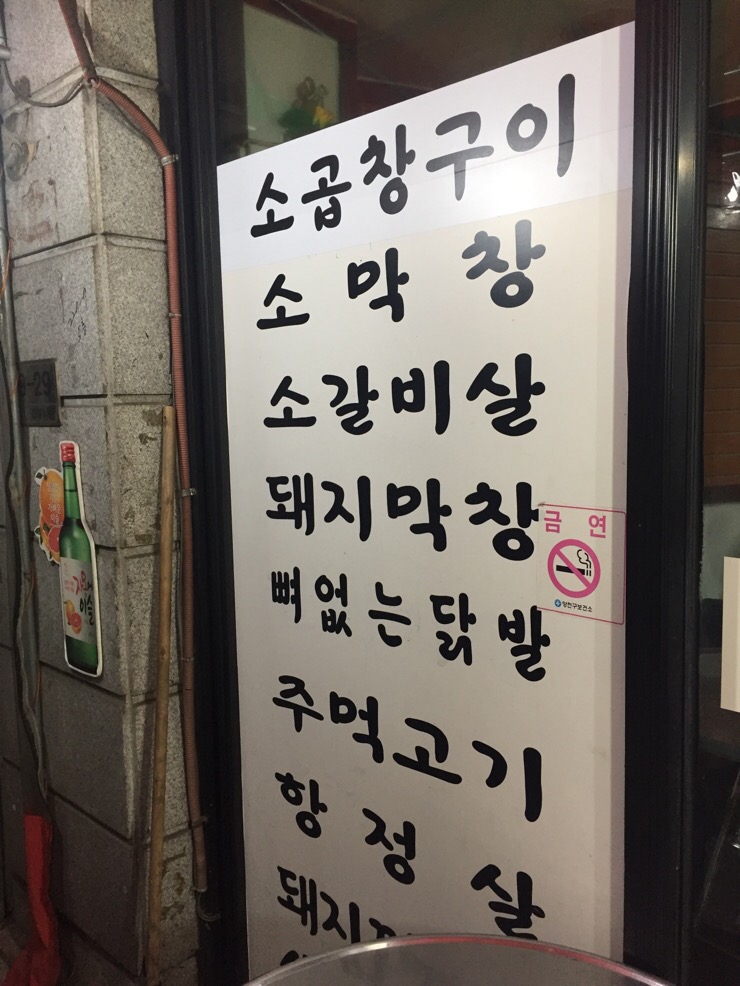 소곱창구이
소 막 창
소갈비살
돼지막창
금 연
양천구보건소
뼈없는닭발
주먹고기
항정살
돼지
이슬